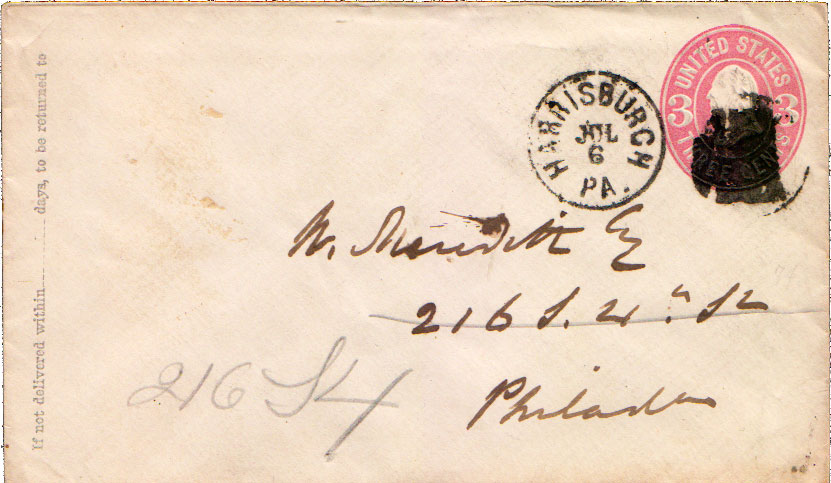 If not delivered within days, to be returned to
UNITED STATES
3 3
THREE CENTS
HARRISBURGH
JUL
6
PA.
W. Meredith Esq
216 S. 4th St
Philada
216 S 4